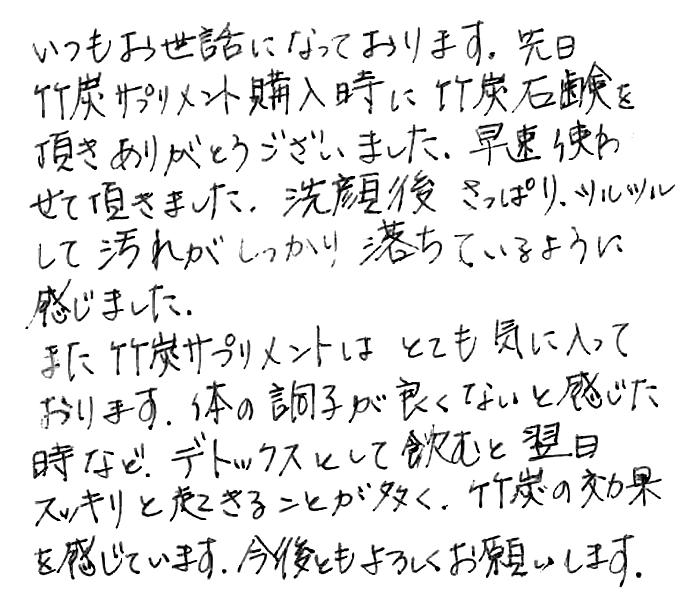 いつもお世話になっております。先日
竹炭サプリメント購入時に竹炭石鹸を
頂きありがとうございました。早速使わ
せて頂きました。洗顔後さっぱり、ツルツル
して汚れがしっかり落ちているように
感じました。
また竹炭サプリメントはとても気に入って
おります。体の調子が良くないと感じた
時など、デトックスとして飲むと翌日
スッキリと起きることが多く、竹炭の効果
を感じています。今後ともよろしくお願いします。